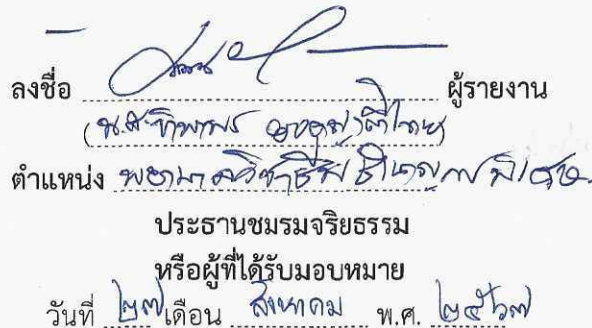 ลงชื่อ ผู้รายงาน
(น.ส.ทิพาพร
ตำแหน่ง พยาบาลวิชาชีพชำนาญการพิเศษ
ประธานชมรมจริยธรรม
หรือผู้ที่ได้รับมอบหมาย
วันที่ ๒๗ เดือน สิงหาคม พ.ศ. ๒๕๖๗